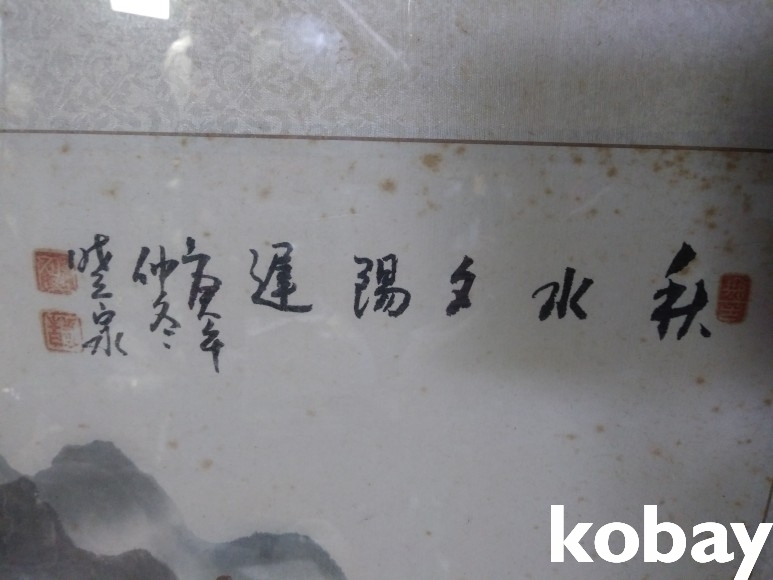 秋水夕陽遲
庚年
仲冬
曉泉
kobay